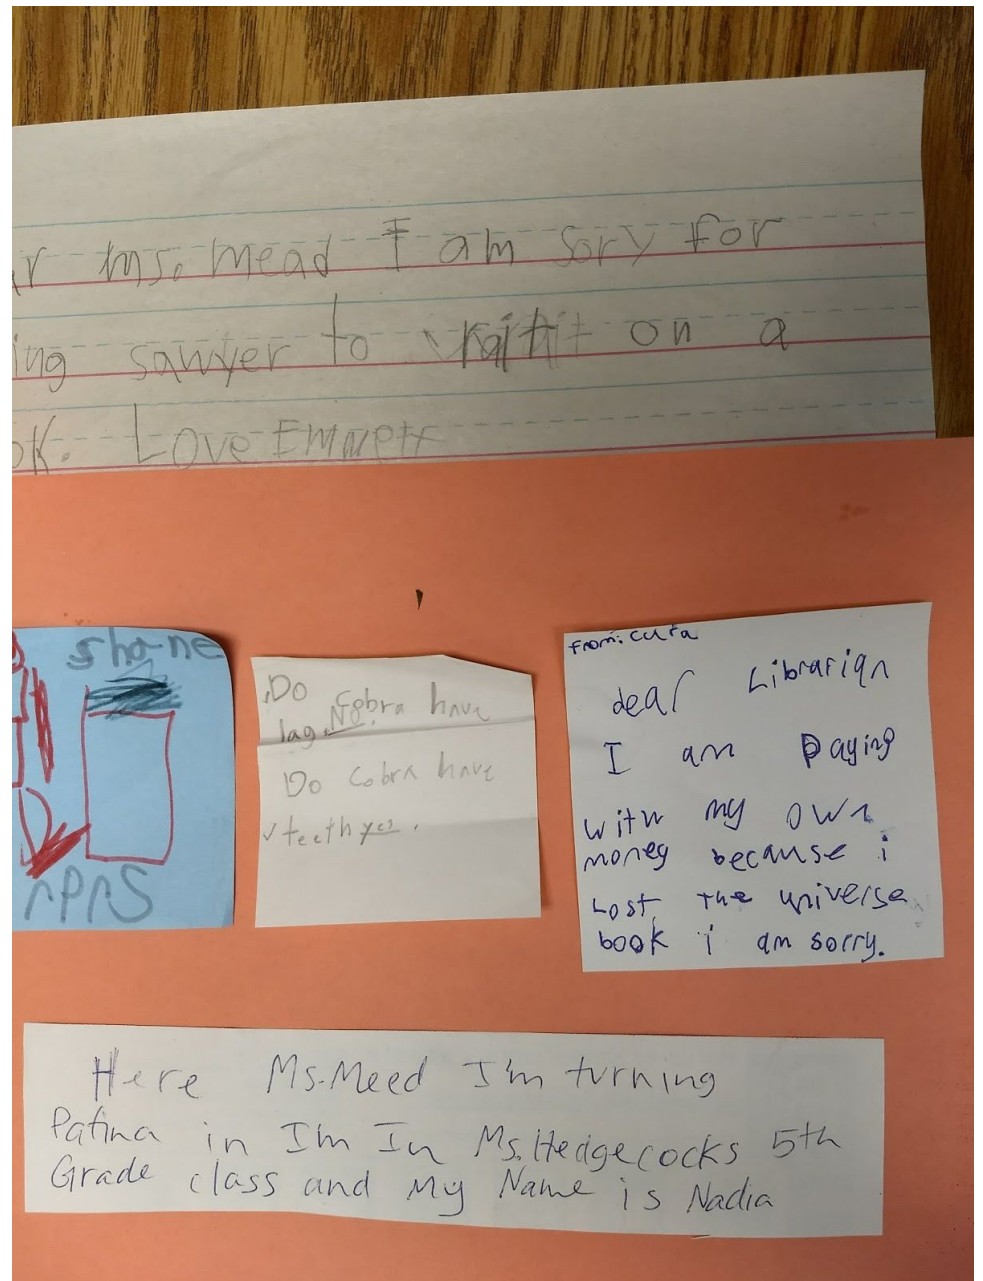 r ms. mead I am sory for
ing sawyer to on a
ok. Love Emmett
shane
Do Cobra have
lag. No.
Do Cobra have
teeth yes.
From:
dear Librarian
I am paying
with my own
money because i
Lost the universe
book i am sorry.
Here Ms. Meed I'm turning
Patina in I'm In Ms. Hedgecocks 5th
Grade class and My Name is Nadia